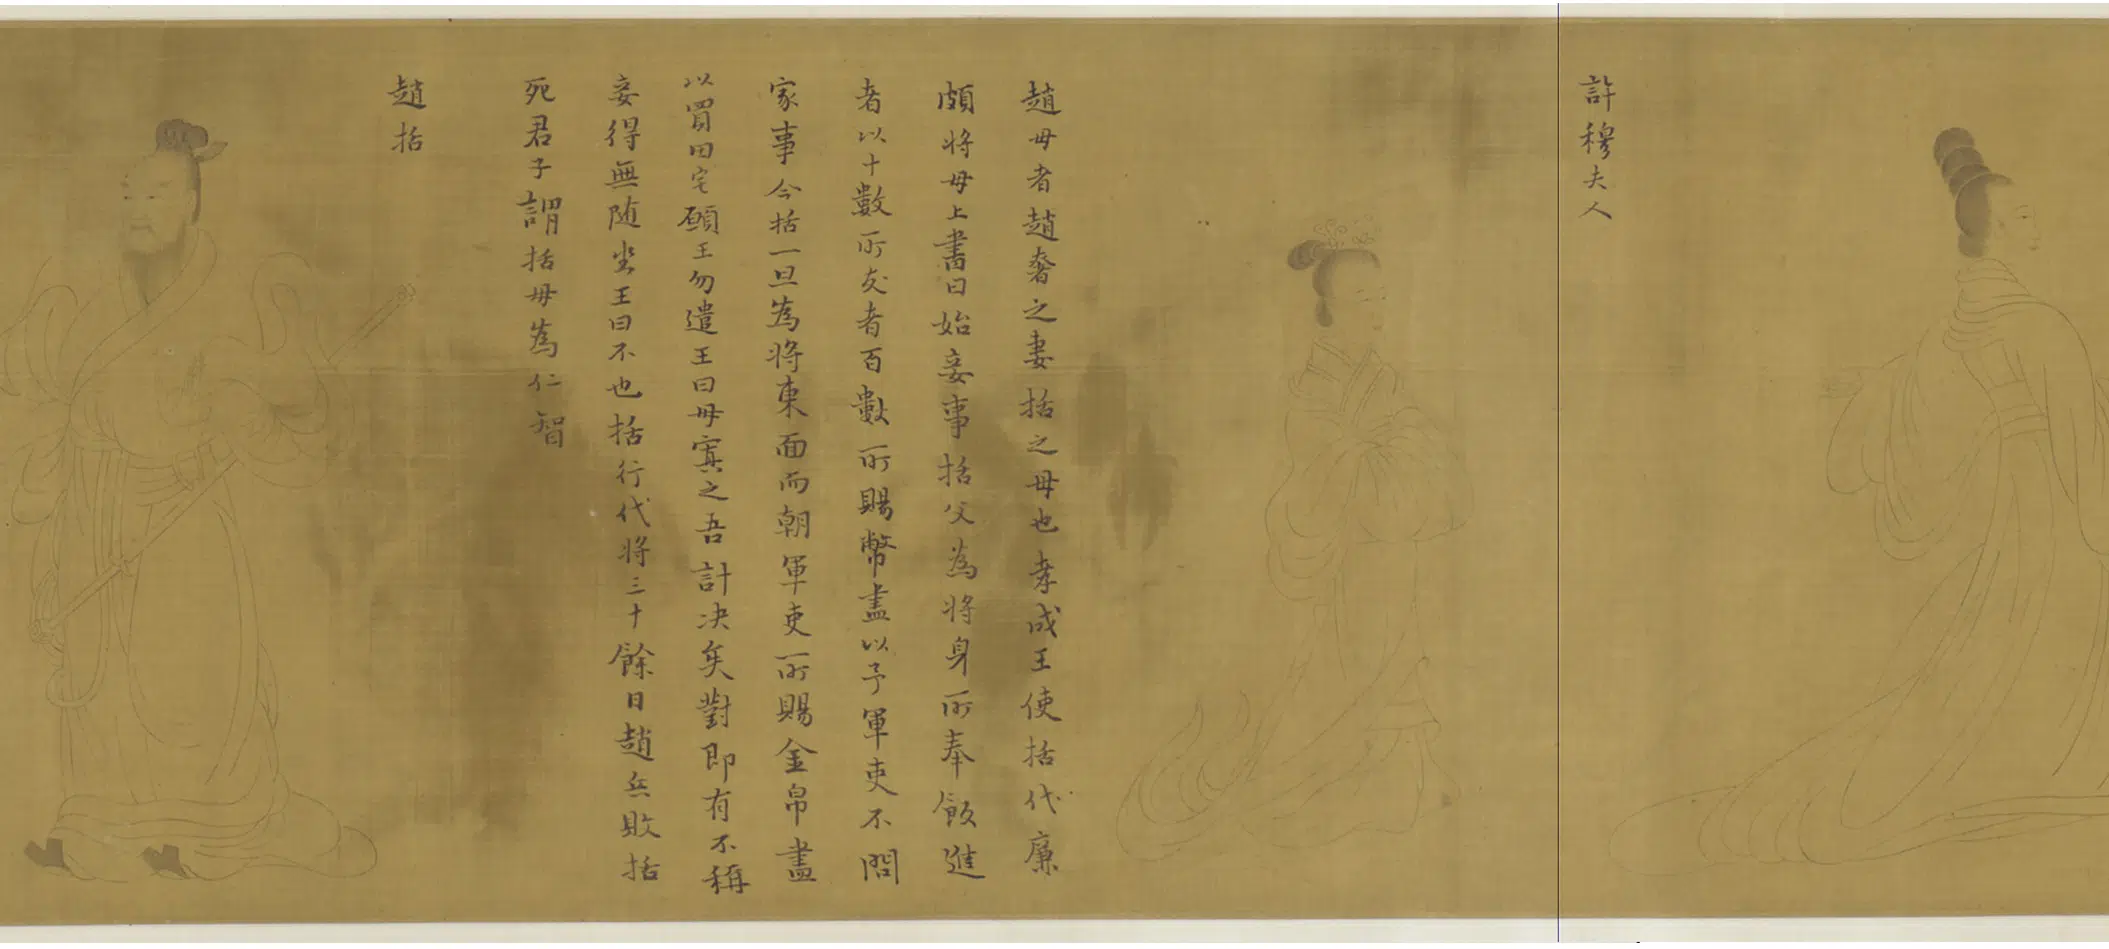 許穆夫人
趙母者趙奢之妻括之母也孝成王使括代廉
頗將母上書曰始妾事括父為將身所奉飯進
者以十數所友者百數所賜幣盡以予軍吏不問
家事今括一旦為將東面而朝軍吏所賜金帛盡
以買田宅願王勿遣王曰母寘之吾計决矣對即有不稱
妾得無随坐王曰不也括行代將三十餘日趙兵敗括
死君子謂括母為仁智
趙括